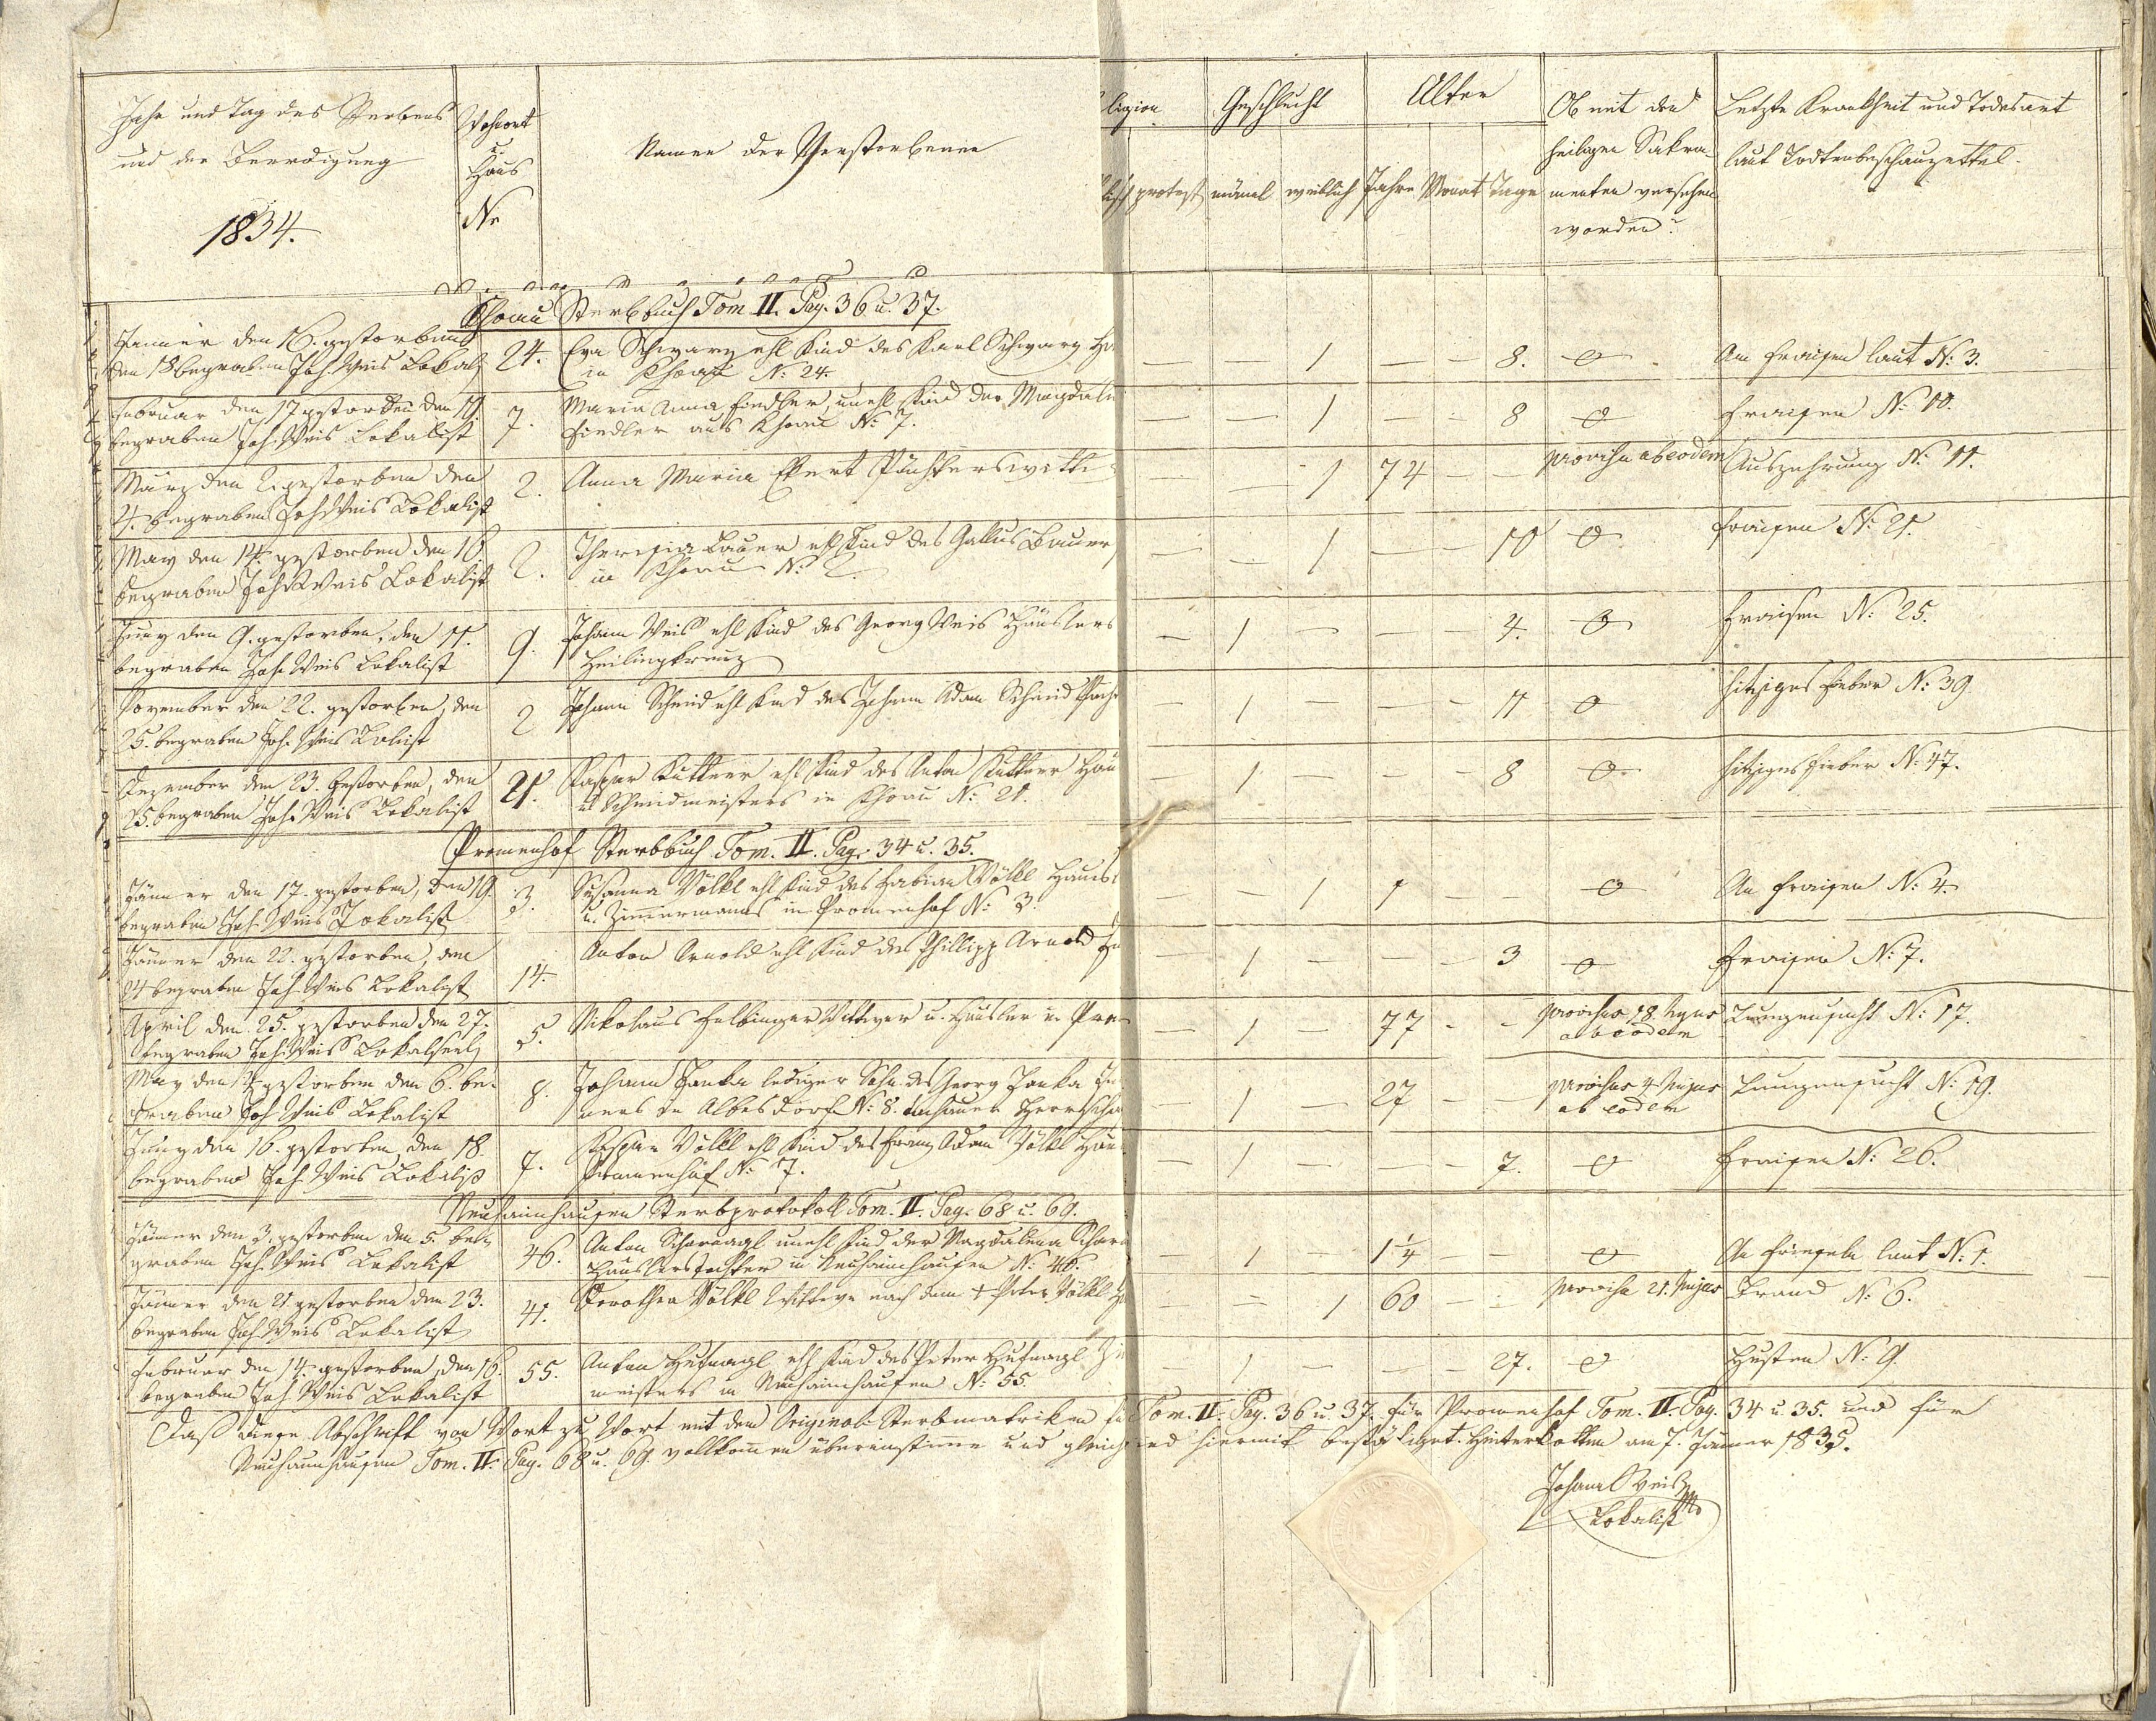 Jahr und Tag des Sterbens
und der Beerdigung
1834.
Wohnort
u.
Haus
Nr
Namen der Verstorbenen
ligion
lisch protest
Geschlecht
mänl weiblich
Alter
Jahre Monat Tage
Ob mit den
heiligen Sakra-
menten versehen
worden?
Letzte Krankheit und Todesart
laut Todtenbeschauzettel.
Khoau Sterbbuch Tom. II. Pag. 36 u. 37.
Jänner den 16. gestorben
den 18 begraben Joh. Weis Lokal
24.
Eva Schwarz ehl Kind des Karl Schwarz
in Khoau N: 24.
— 1 — — 8. O
An Fraisen laut N: 3.
Februar den 17 gestorben den 19.
begraben Joh. Weis Lokalist
7.
Maria Anna Fiedler, unehl Kind der Magdale
Fiedler aus Khoau N: 7.
— — 1 — — 8 O
Fraisen N: 10.
März den 2. gestorben den
4. begraben Joh Weis Lokalist
2.
Anna Maria Ekert Pächterswitt
— — 1 74 — —
provisa ab eodem
Auszehrung N: 11.
May den 14. gestorben den 16
begraben Joh Weis Lokalist
2.
Theresia Bauer ehl Kind des Gallus Bauer
in Khoau N: 2.
— 1 — — 10 O
Fraisen N: 21.
Juny den 9. gestorben, den 11.
begraben Joh. Weis Lokalist
9.
Johann Weis ehl Kind des Georg Weis Häuslers
Heiligkreuz
— 1 — — — 4. O
Fraisen N: 25.
November den 22. gestorben, den
25. begraben Joh. Weis Lokalist
2
Johann Schmid ehl Kind des Johann Adam Schmid
— 1 — — — 11 O
hitziges Fieber N: 39.
Dezember den 23. gestorben, den
25. begraben Joh. Weis Lokalist
21.
Kaspar Kuttner ehl Kind des Anton Kuttner
u Schmidmeisters in Khoau N: 21.
— 1 — — — 8 O
hitziges Fieber N: 47.
Promenhof Sterbbuch Tom. II. Pag. 34 u. 35.
Jänner den 17. gestorben, den 19.
begraben Joh. Weis Lokalist
3.
Susanna Völkl ehl Kind des Fabian Völkl
u. Zimmermanns in Promenhof N: 3.
— — 1 1 — — O
An Fraisen N: 4.
Jänner den 22. gestorben, den
24 begraben Joh. Weis Lokalist
14.
Anton Arnold ehl Kind des Phillipp Arnold
— 1 — — — 3 O
Fraisen N: 7.
April den 25. gestorben den 27.
begraben Joh. Weis Lokalseels
5.
Nikolaus Helbinger Wittwer u. Häusler in Pro
— 1 — 77 — —
provisus 18. hujus
ab eodem
Lungensucht N: 17.
May den 4 gestorben den 6. be-
graben Joh Weis Lokalist
8.
Johann Janka lediger Sohn des Georg Janka
ners in Albesdorf N: 8. Herrscha
— 1 — 27 — —
provisus 4 hujus
ab eodem
Lungensucht N: 19.
Juny den 16. gestorben, den 18.
begraben Joh. Weis Lokalist
7.
Kaspar Völkl ehl Kind des Franz Adam Völkl
Promenhof N: 7.
— 1 — — — 7. O
Fraisen N: 26.
Neuhaimhausen Sterbprotokoll Tom. II. Pag. 68 u. 69.
Jänner den 3. gestorben den 5. be
graben Joh. Weis Lokalist
46.
Anton Scharnagl unehl Kind der Magdalena Schar
Häuslers Tochter in Neuhaimhausen N: 46.
— 1 — 1¼ — — O
An Fraiseln laut N: 1.
Jänner den 21. gestorben den 23.
begraben Joh. Weis Lokalist
41.
Dorothea Völkl Wittwe nach dem † Peter Völkl
— — 1 60 — —
provisa 21. hujus
Brand N: 6.
Februar den 14. gestorben, den 16.
begraben Joh. Weis Lokalist
55.
Anton Hufnagl ehl Kind des Peter Hufnagl
meisters in Neuhaimhausen N: 55
— 1 — — — 27. O
Husten N: 9.
Daß diese Abschrift von Wort zu Wort mit den Original Sterbmatriken Tom. II. Pag. 36 u. 37. für Promenhof Tom. II. Pag. 34 u. 35. und für
Neuhaimhausen Tom. II. Pag. 68 u. 69. vollkommen übereinstimme und gleich hiermit bestätiget. Hinterkotten am 7. Jänner 1835.
Johann Weis
Lokalist